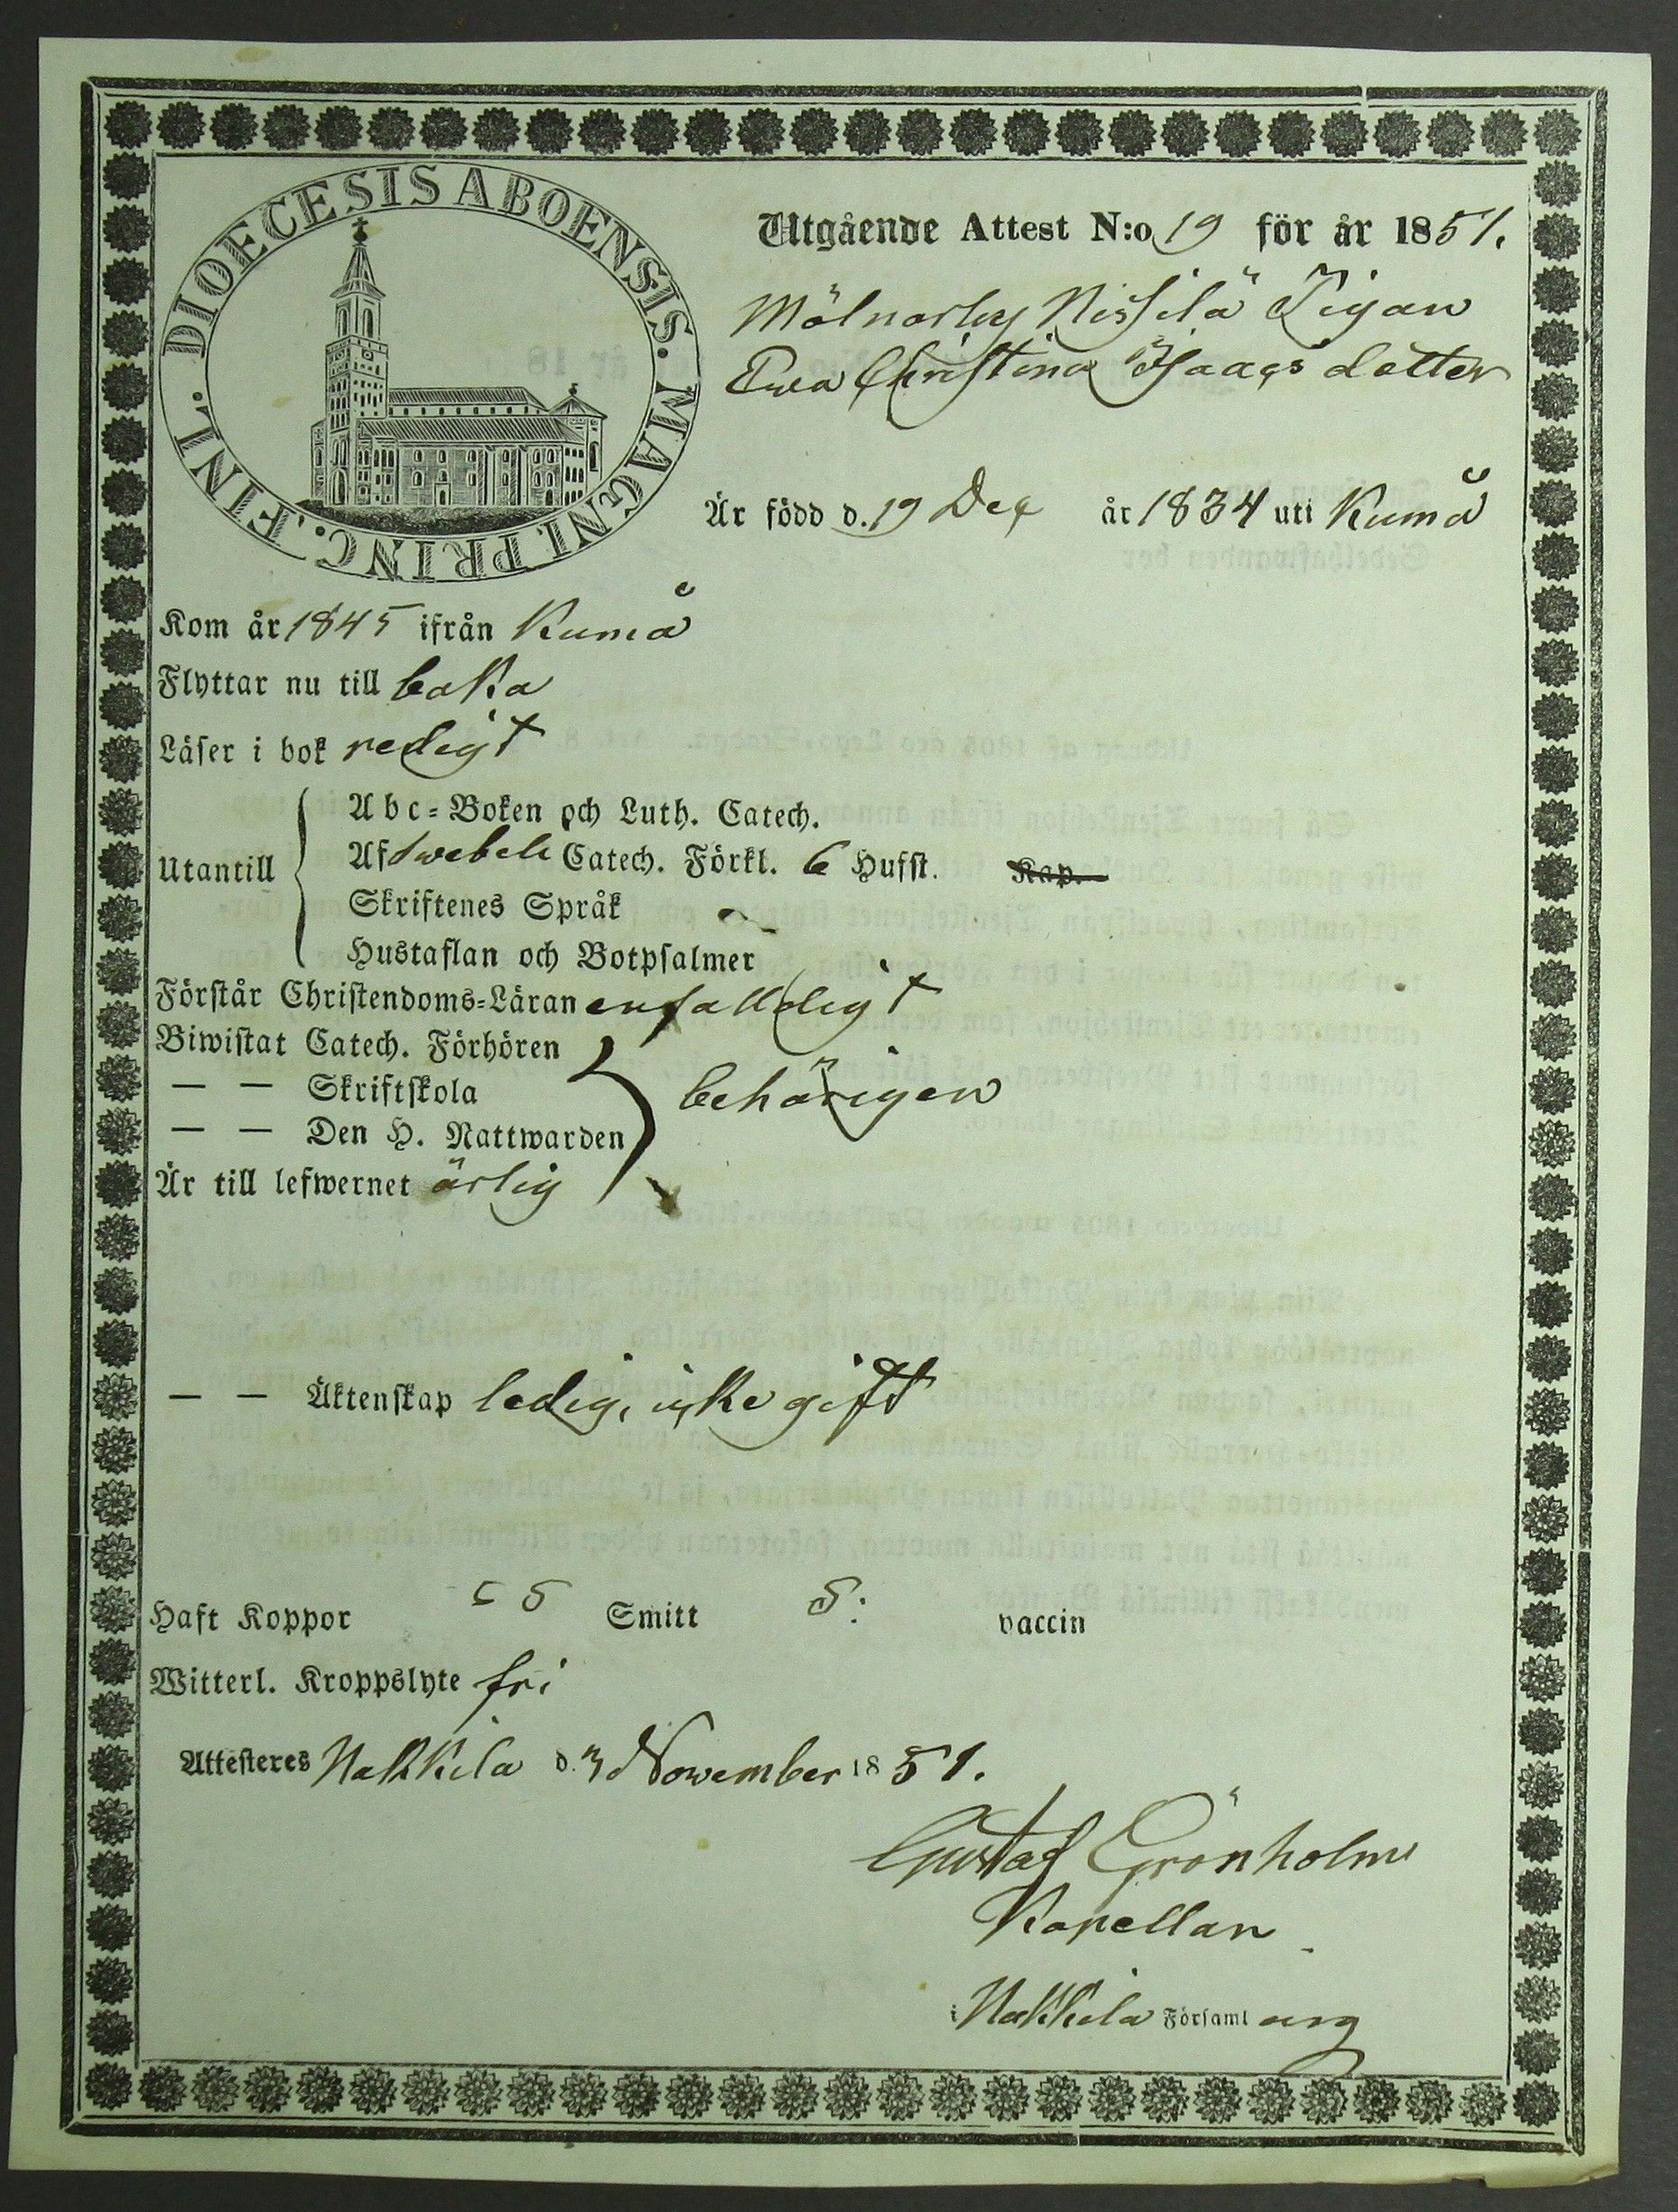 DIOECESIS ABOENSIS. MAGNI. PRINC. FINL.
Utgående Attest N:o 19 för år 1851.
Mälnarby Nissilä Pigan
Ewa Christina Isaacsdotter
Är född d. 19 Dec år 1834 uti Kumå
Kom år 1845 ifrån Kumå
Flyttar nu till baka
Läser i bok redigt
Utantill
Abc-Boken och Luth. Catech.
Af Swebelii Catech. Förkl. 6 Hufst. Kap.
Skriftenes Språk
Hustaflan och Botpsalmer
Förstår Christendoms-Läran enfalldigt
Biwistat Catech. Förhören
— — Skriftskola behörigen
— — Den H. Nattwarden
Är till lefwernet ärlig
— — Äktenskap ledig, icke gift
Haft Koppor Smitt vaccin
Witterl. Kroppslyte fri
Attesteres Nakkila d. 3 November 1851.
Gustaf Grönholm
Kapellan
i Nakkila Församl ing